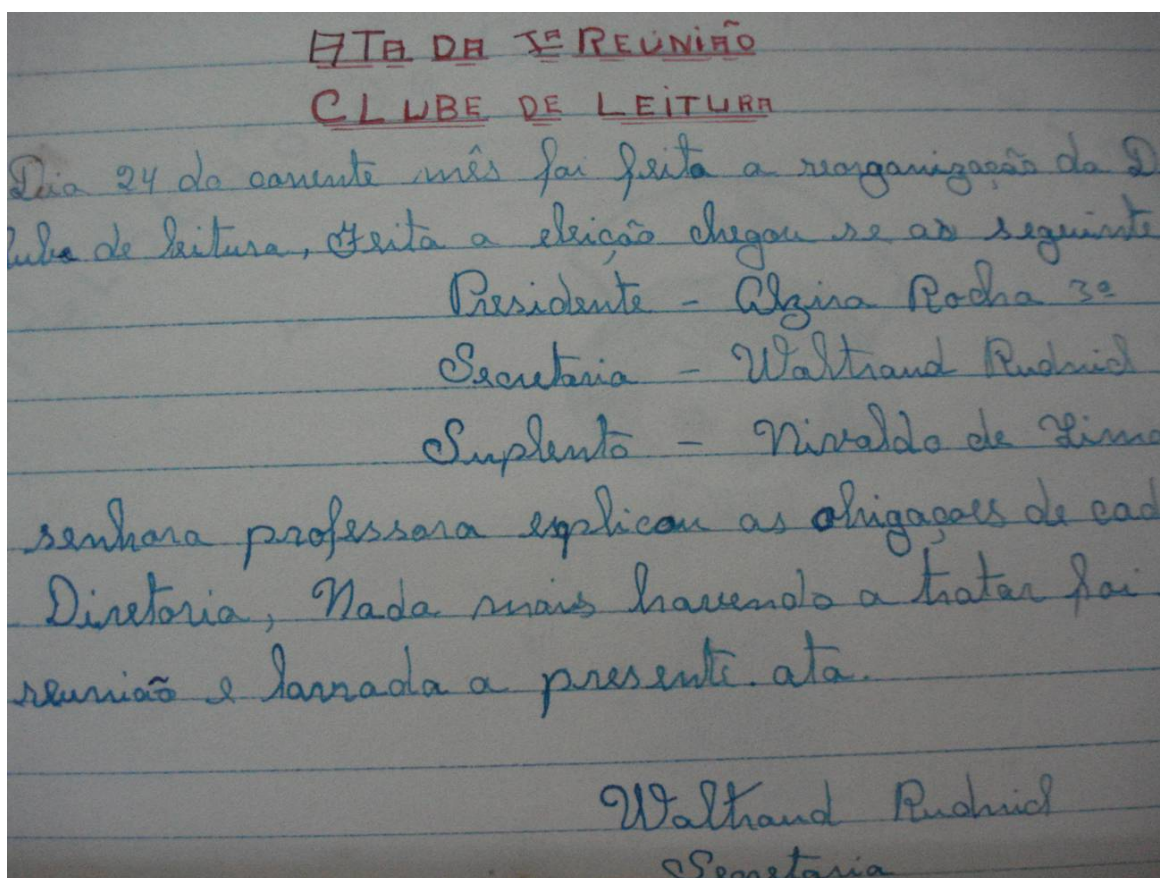 ATA DA Iª REUNIÃO
CLUBE DE LEITURA
Dia 24 do corrente mês foi feita a reorganização da D
lube de leitura, Feita a eleição chegou se as seguinte
Presidente - Alzira Rocha 3º
Secretaria - Waltraud Rudnick
Suplento - Nivaldo de Lima
senhora professora explicou as obigaçoes de cad
Diretoria, Nada mais havendo a tratar foi
reunião e larrada a presente. ata.
Waltraud Rudnick
Secretaria